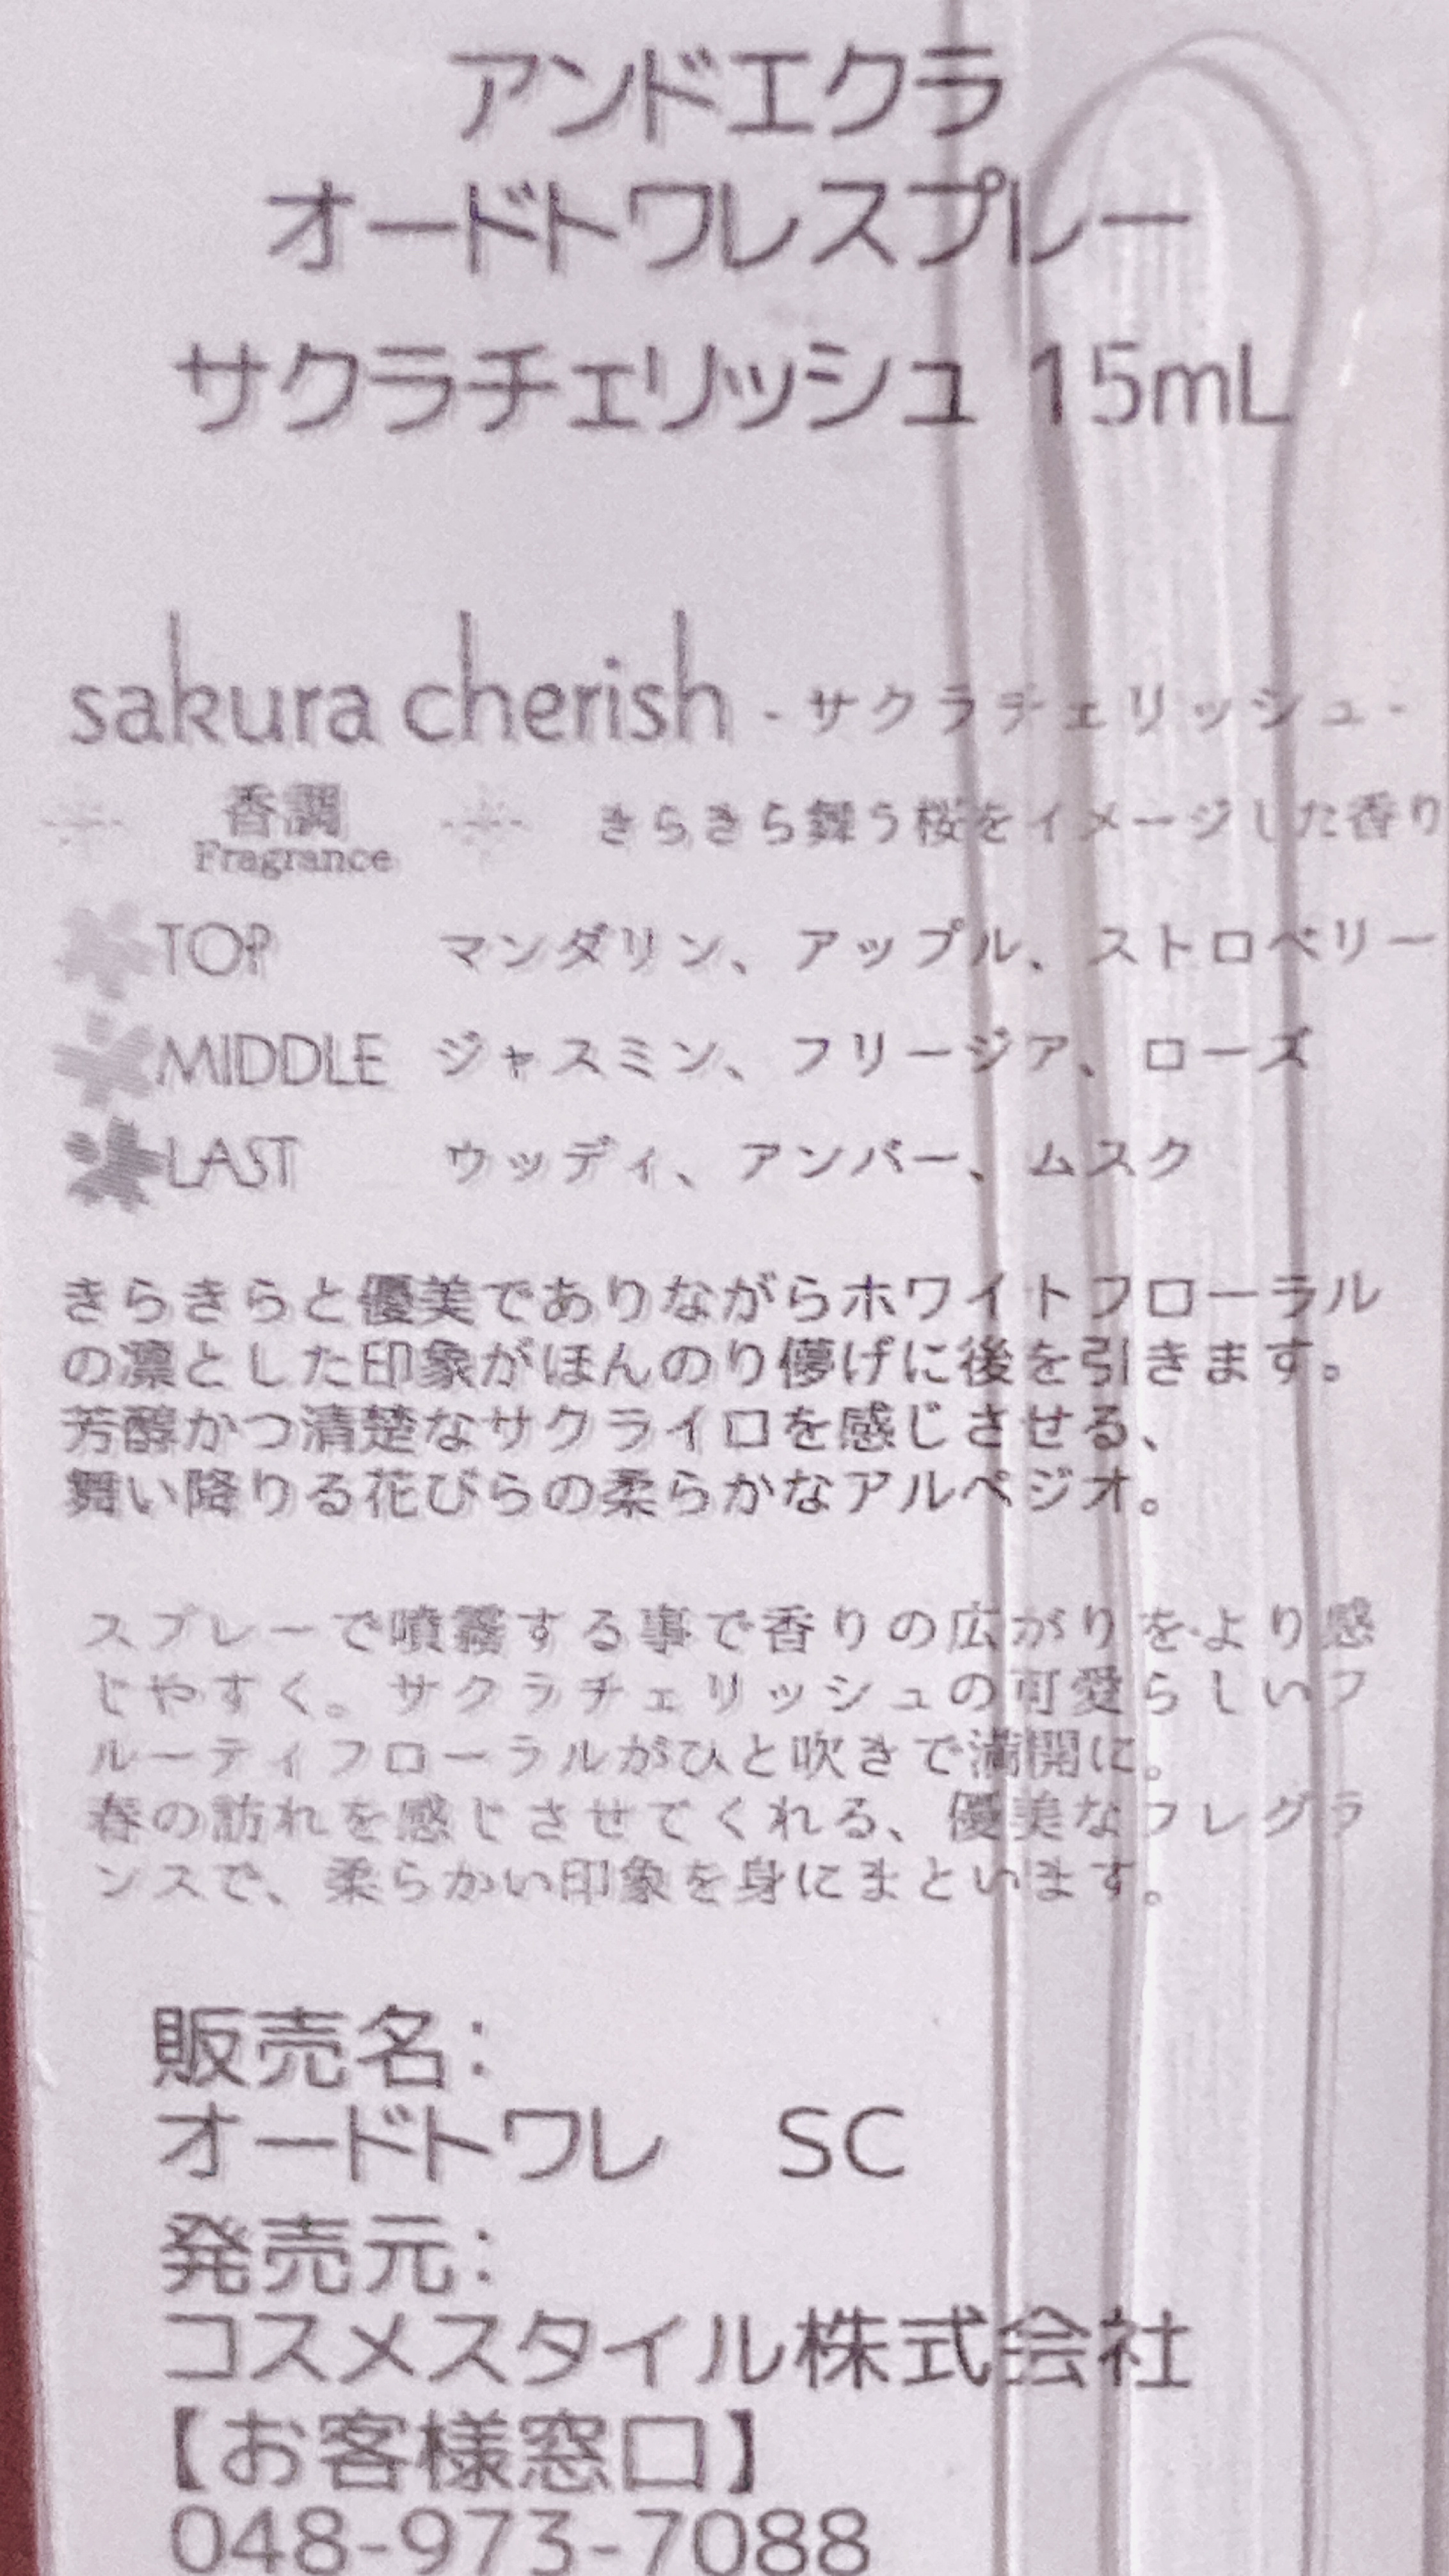 アンドエクラ
オードトワレスプレー
サクラチェリッシュ 15mL
sakura cherish -サクラチェリッシュ-
香調 きらきら舞う桜をイメージした香り
Fragrance
TOP マンダリン、アップル、ストロベリー
MIDDLE ジャスミン、フリージア、ローズ
LAST ウッディ、アンバー、ムスク
きらきらと優美でありながらホワイトフローラル
の凛とした印象がほんのり儚げに後を引きます。
芳醇かつ清楚なサクライロを感じさせる、
舞い降りる花びらの柔らかなアルペジオ。
スプレーで噴霧する事で香りの広がりをより感
じやすく。サクラチェリッシュの可愛らしいフ
ルーティフローラルがひと吹きで満開に。
春の訪れを感じさせてくれる、優美なフレグラ
ンスで、柔らかい印象を身にまといます。
販売名:
オードトワレ SC
発売元:
コスメスタイル株式会社
【お客様窓口】
048-973-7088